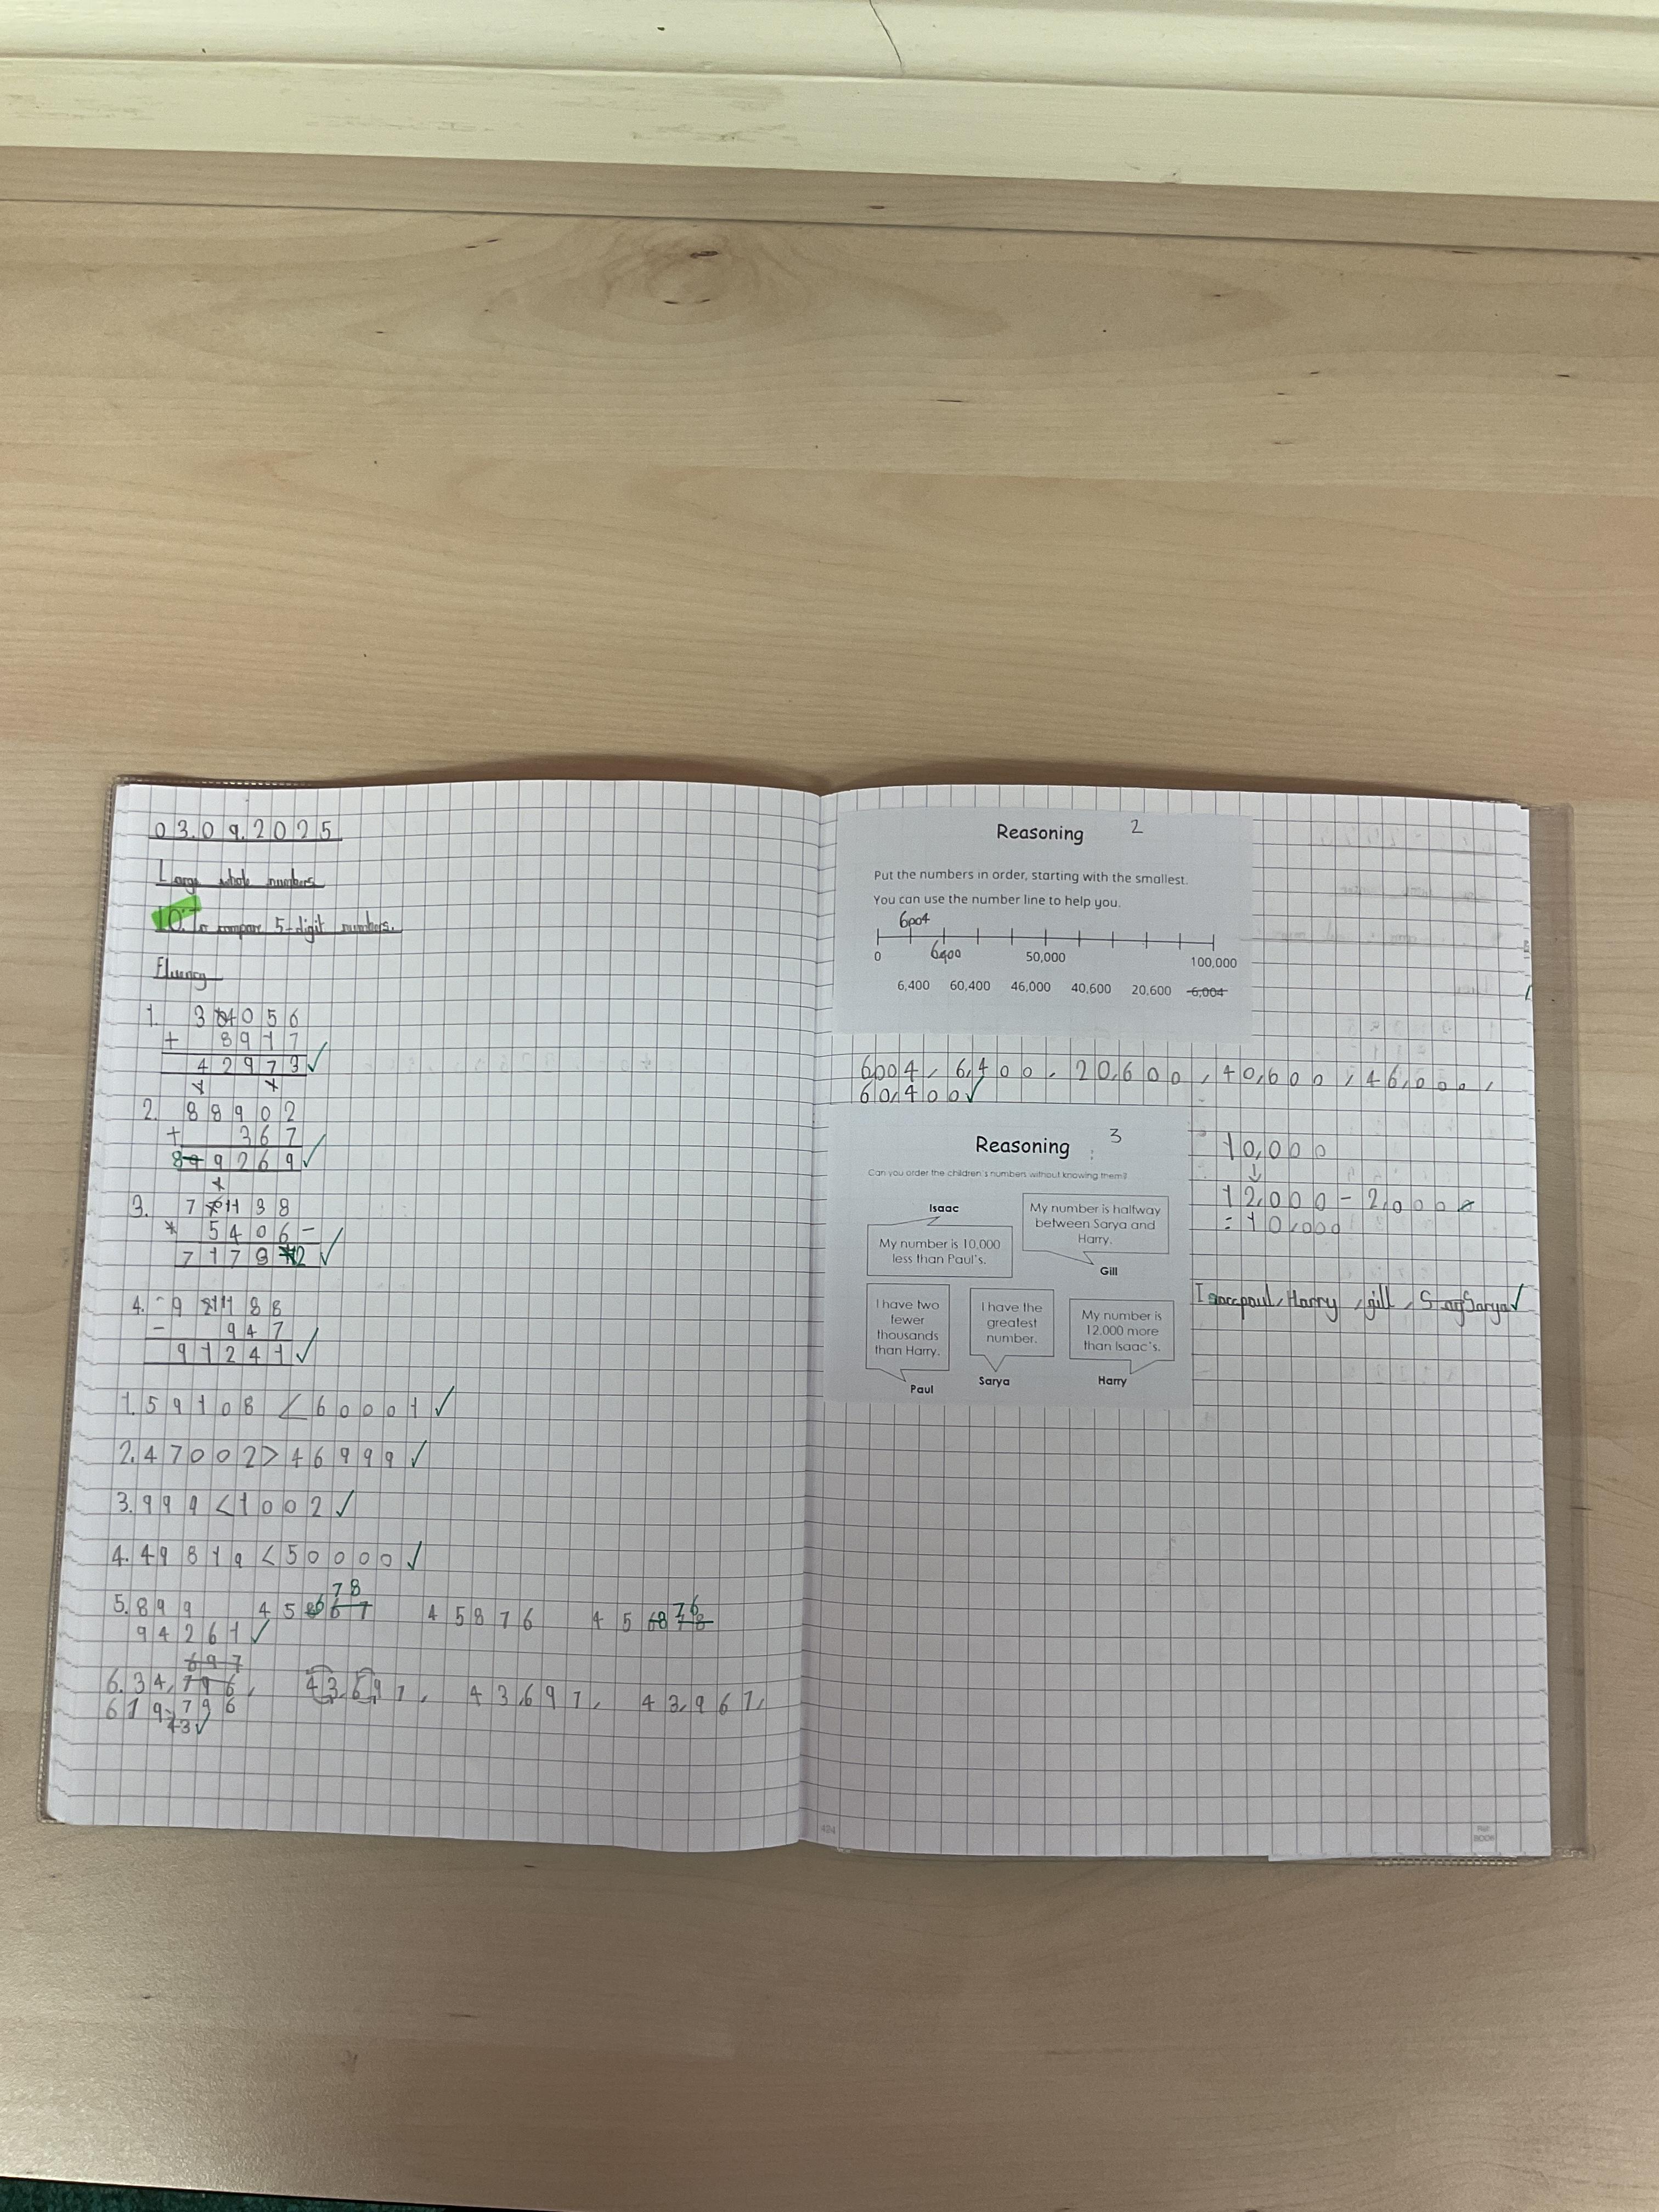 03.09.2025
Large whole numbers
LO: To compare 5-digit numbers.
Fluency
1. 34056
+ 8917
42973 ✓
2. 88902
+ 367
89269 ✓
3. 5406 -
7 1 7 3 2 ✓
4.
- 947
91241 ✓
1. 59108 < 60001 ✓
2. 47002 > 46999 ✓
3. 999 < 1002 ✓
4. 49819 < 50000 ✓
5. 899 45678 45876
94261 ✓
6. 34, 697 43,697, 43,967,
619,796
Reasoning 2
Put the numbers in order, starting with the smallest.
You can use the number line to help you.
6004
0 6400 50,000 100,000
6,400 60,400 46,000 40,600 20,600 6,004
6004, 6,400, 20,600, 40,600, 46,000,
60,400 ✓
Reasoning 3
Can you order the children's numbers without knowing them?
Isaac
My number is 10,000
less than Paul's.
My number is halfway
between Sarya and
Harry.
Gill
I have two
fewer
thousands
than Harry.
Paul
I have the
greatest
number.
Sarya
My number is
12,000 more
than Isaac's.
Harry
10,000
↓
12,000 - 2,000
= 10,000
Isaac paul, Harry, gill, Sarya ✓